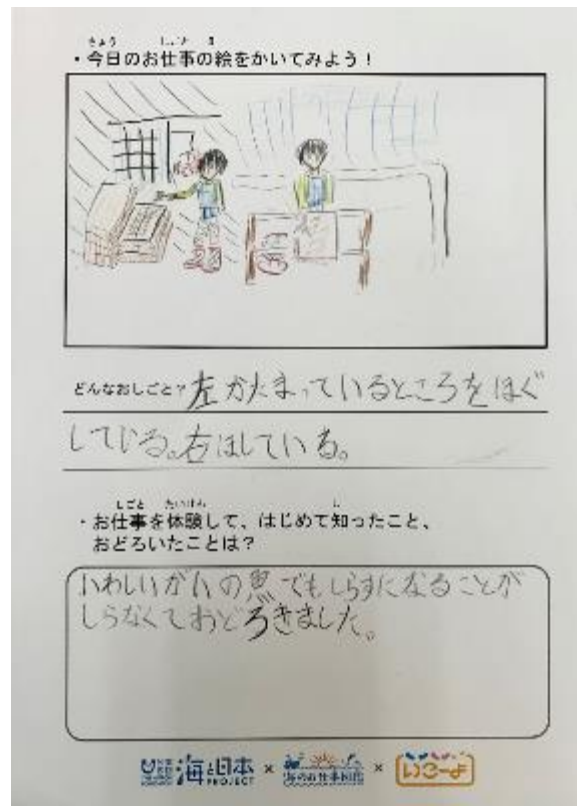 きょう しごと え
・今日のお仕事の絵をかいてみよう！
どんなおしごと？左かたまっているところをほぐ
している。右ほしている。
しごと たいけん し
・お仕事を体験して、はじめて知ったこと、
おどろいたことは？
いわしいがいの魚でもしらすになることが
しらなくておどろきました。
海と日本 PROJECT × 海のお仕事図鑑 × いこーよ